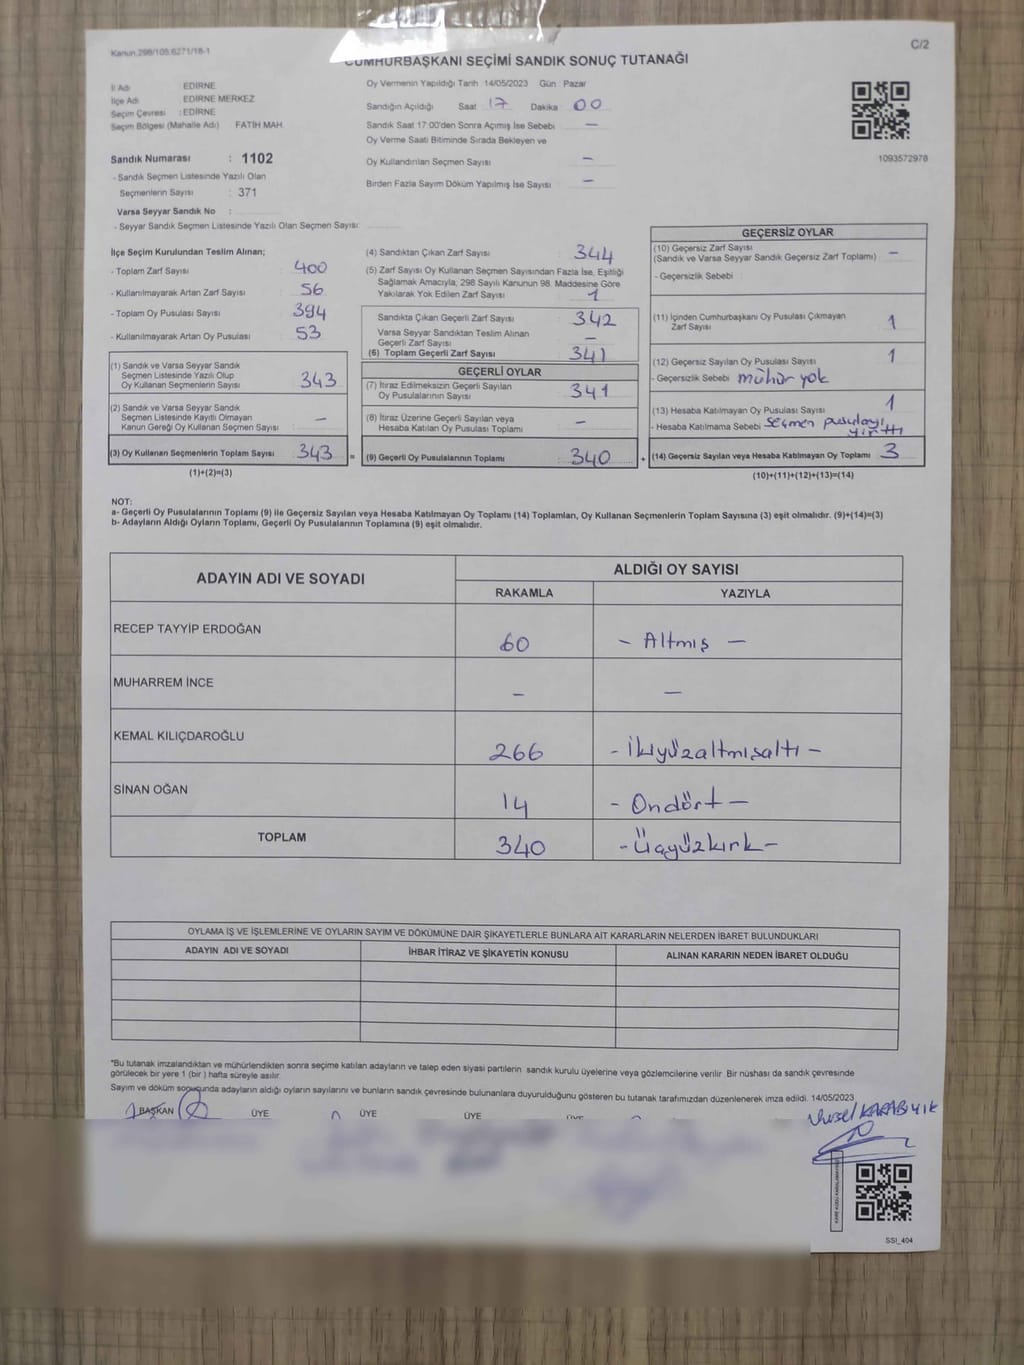 Kanun.298/105.6271/18-1
C/2
CUMHURBAŞKANI SEÇİMİ SANDIK SONUÇ TUTANAĞI
İl Adı EDİRNE
İlçe Adı EDİRNE MERKEZ
Seçim Çevresi : EDİRNE
Seçim Bölgesi (Mahalle Adı) FATİH MAH.
Sandık Numarası : 1102
- Sandık Seçmen Listesinde Yazılı Olan
Seçmenlerin Sayısı : 371
Varsa Seyyar Sandık No :
- Seyyar Sandık Seçmen Listesinde Yazılı Olan Seçmen Sayısı:
Oy Vermenin Yapıldığı Tarih 14/05/2023 Gün : Pazar
Sandığın Açıldığı Saat 17 Dakika 00
Sandık Saat 17:00'den Sonra Açımış İse Sebebi —
Oy Verme Saati Bitiminde Sırada Bekleyen ve
Oy Kullandırılan Seçmen Sayısı —
Birden Fazla Sayım Döküm Yapılmış İse Sayısı —
1093572978
İlçe Seçim Kurulundan Teslim Alınan;
- Toplam Zarf Sayısı : 400
- Kullanılmayarak Artan Zarf Sayısı : 56
- Toplam Oy Pusulası Sayısı : 394
- Kullanılmayarak Artan Oy Pusulası : 53
(1) Sandık ve Varsa Seyyar Sandık
Seçmen Listesinde Yazılı Olup
Oy Kullanan Seçmenlerin Sayısı : 343
(2) Sandık ve Varsa Seyyar Sandık
Seçmen Listesinde Kayıtlı Olmayan
Kanun Gereği Oy Kullanan Seçmen Sayısı : —
(3) Oy Kullanan Seçmenlerin Toplam Sayısı : 343 =
(1)+(2)=(3)
(4) Sandıktan Çıkan Zarf Sayısı : 344
(5) Zarf Sayısı Oy Kullanan Seçmen Sayısından Fazla İse, Eşitliği
Sağlamak Amacıyla; 298 Sayılı Kanunun 98. Maddesine Göre
Yakılarak Yok Edilen Zarf Sayısı : 1
Sandıkta Çıkan Geçerli Zarf Sayısı : 342
Varsa Seyyar Sandıktan Teslim Alınan
Geçerli Zarf Sayısı : —
(6) Toplam Geçerli Zarf Sayısı : 341
GEÇERLİ OYLAR
(7) İtiraz Edilmeksizin Geçerli Sayılan
Oy Pusulalarının Sayısı : 341
(8) İtiraz Üzerine Geçerli Sayılan veya
Hesaba Katılan Oy Pusulası Toplamı : —
(9) Geçerli Oy Pusulalarının Toplamı : 340 +
GEÇERSİZ OYLAR
(10) Geçersiz Zarf Sayısı
(Sandık ve Varsa Seyyar Sandık Geçersiz Zarf Toplamı) : —
- Geçersizlik Sebebi :
(11) İçinden Cumhurbaşkanı Oy Pusulası Çıkmayan
Zarf Sayısı : 1
(12) Geçersiz Sayılan Oy Pusulası Sayısı : 1
- Geçersizlik Sebebi mühür yok
(13) Hesaba Katılmayan Oy Pusulası Sayısı : 1
- Hesaba Katılmama Sebebi Seçmen pusulayı
yırttı
(14) Geçersiz Sayılan veya Hesaba Katılmayan Oy Toplamı : 3
(10)+(11)+(12)+(13)=(14)
NOT:
a- Geçerli Oy Pusulalarının Toplamı (9) ile Geçersiz Sayılan veya Hesaba Katılmayan Oy Toplamı (14) Toplamları, Oy Kullanan Seçmenlerin Toplam Sayısına (3) eşit olmalıdır. (9)+(14)=(3)
b- Adayların Aldığı Oyların Toplamı, Geçerli Oy Pusulalarının Toplamına (9) eşit olmalıdır.
ADAYIN ADI VE SOYADI ALDIĞI OY SAYISI
RAKAMLA YAZIYLA
RECEP TAYYİP ERDOĞAN 60 - Altmış -
MUHARREM İNCE — —
KEMAL KILIÇDAROĞLU 266 - İkiyüzaltmışaltı -
SİNAN OĞAN 14 - Ondört -
TOPLAM 340 - Üçyüzkırk -
OYLAMA İŞ VE İŞLEMLERİNE VE OYLARIN SAYIM VE DÖKÜMÜNE DAİR ŞİKAYETLERLE BUNLARA AİT KARARLARIN NELERDEN İBARET BULUNDUKLARI
ADAYIN ADI VE SOYADI İHBAR İTİRAZ VE ŞİKAYETİN KONUSU ALINAN KARARIN NEDEN İBARET OLDUĞU
*Bu tutanak imzalandıktan ve mühürlendikten sonra seçime katılan adayların ve talep eden siyasi partilerin sandık kurulu üyelerine veya gözlemcilerine verilir. Bir nüshası da sandık çevresinde
görülecek bir yere 1 (bir ) hafta süreyle asılır.
Sayım ve döküm sonucunda adayların aldığı oyların sayılarını ve bunların sandık çevresinde bulunanlara duyurulduğunu gösteren bu tutanak tarafımızdan düzenlenerek imza edildi. 14/05/2023
BAŞKAN ÜYE ÜYE ÜYE
KARABIYIK
SSI_404